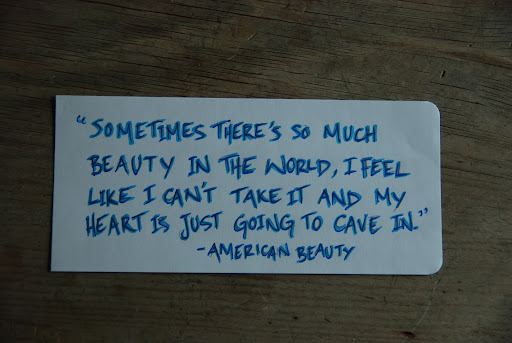 "SOMETIMES THERE'S SO MUCH
BEAUTY IN THE WORLD, I FEEL
LIKE I CAN'T TAKE IT AND MY
HEART IS JUST GOING TO CAVE IN."
-AMERICAN BEAUTY